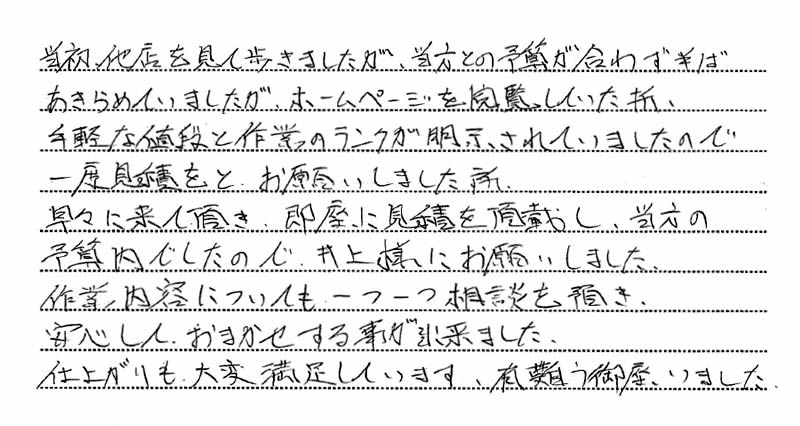 当初、他店を見て歩きましたが、当方との予算が合わず半ば
あきらめていましたが、ホームページを閲覧していた所、
手軽な値段と作業のランクが明示されていましたので
一度見積をと、お願いしました所、
早々に来て頂き、即座に見積を頂戴し、当方の
予算内でしたので、井上様にお願いしました。
作業内容についても一つ一つ相談を頂き、
安心して、おまかせする事が出来ました。
仕上がりも、大変満足しています、有難う御座いました。